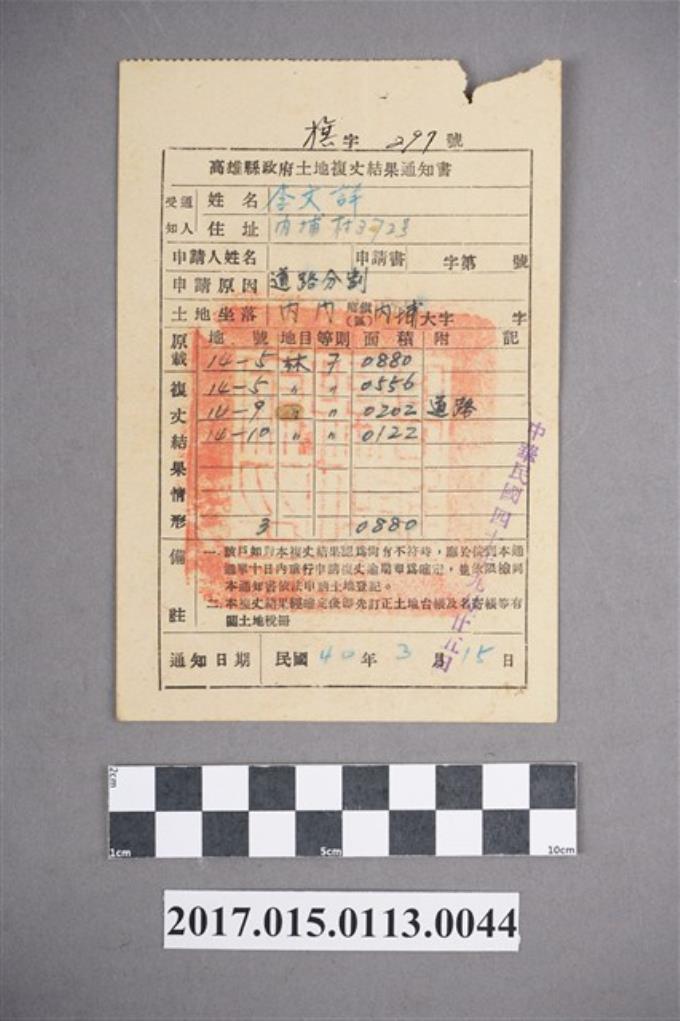 字 297 號
高雄縣政府土地複丈結果通知書
受通知人 姓名 李文許
住址 內埔村372号
申請人姓名 申請書 字第 號
申請原因 道路分割
土地坐落 內 內 鄉鎮(區) 內埔 大字 字
地號 地目 等則 面積 附記
原載 14-5 林 7 0880
複丈結果情形 14-5 〃 〃 0556
14-9 〃 〃 0202 道路
14-10 〃 〃 0122
3 0880
備註
一、該戶如對本複丈結果認為尚有不符時,應於接到本通
通單十日內重行申請複丈逾期單為確定,並依限檢同
本通知書依法申請土地登記。
二、本複丈結果經確定後即先訂正土地台帳及名寄帳等有
關土地稅冊
通知日期 民國 40 年 3 月 15 日
中華民國四十 九 廿五
2cm
1cm
5cm
10cm
2017.015.0113.0044